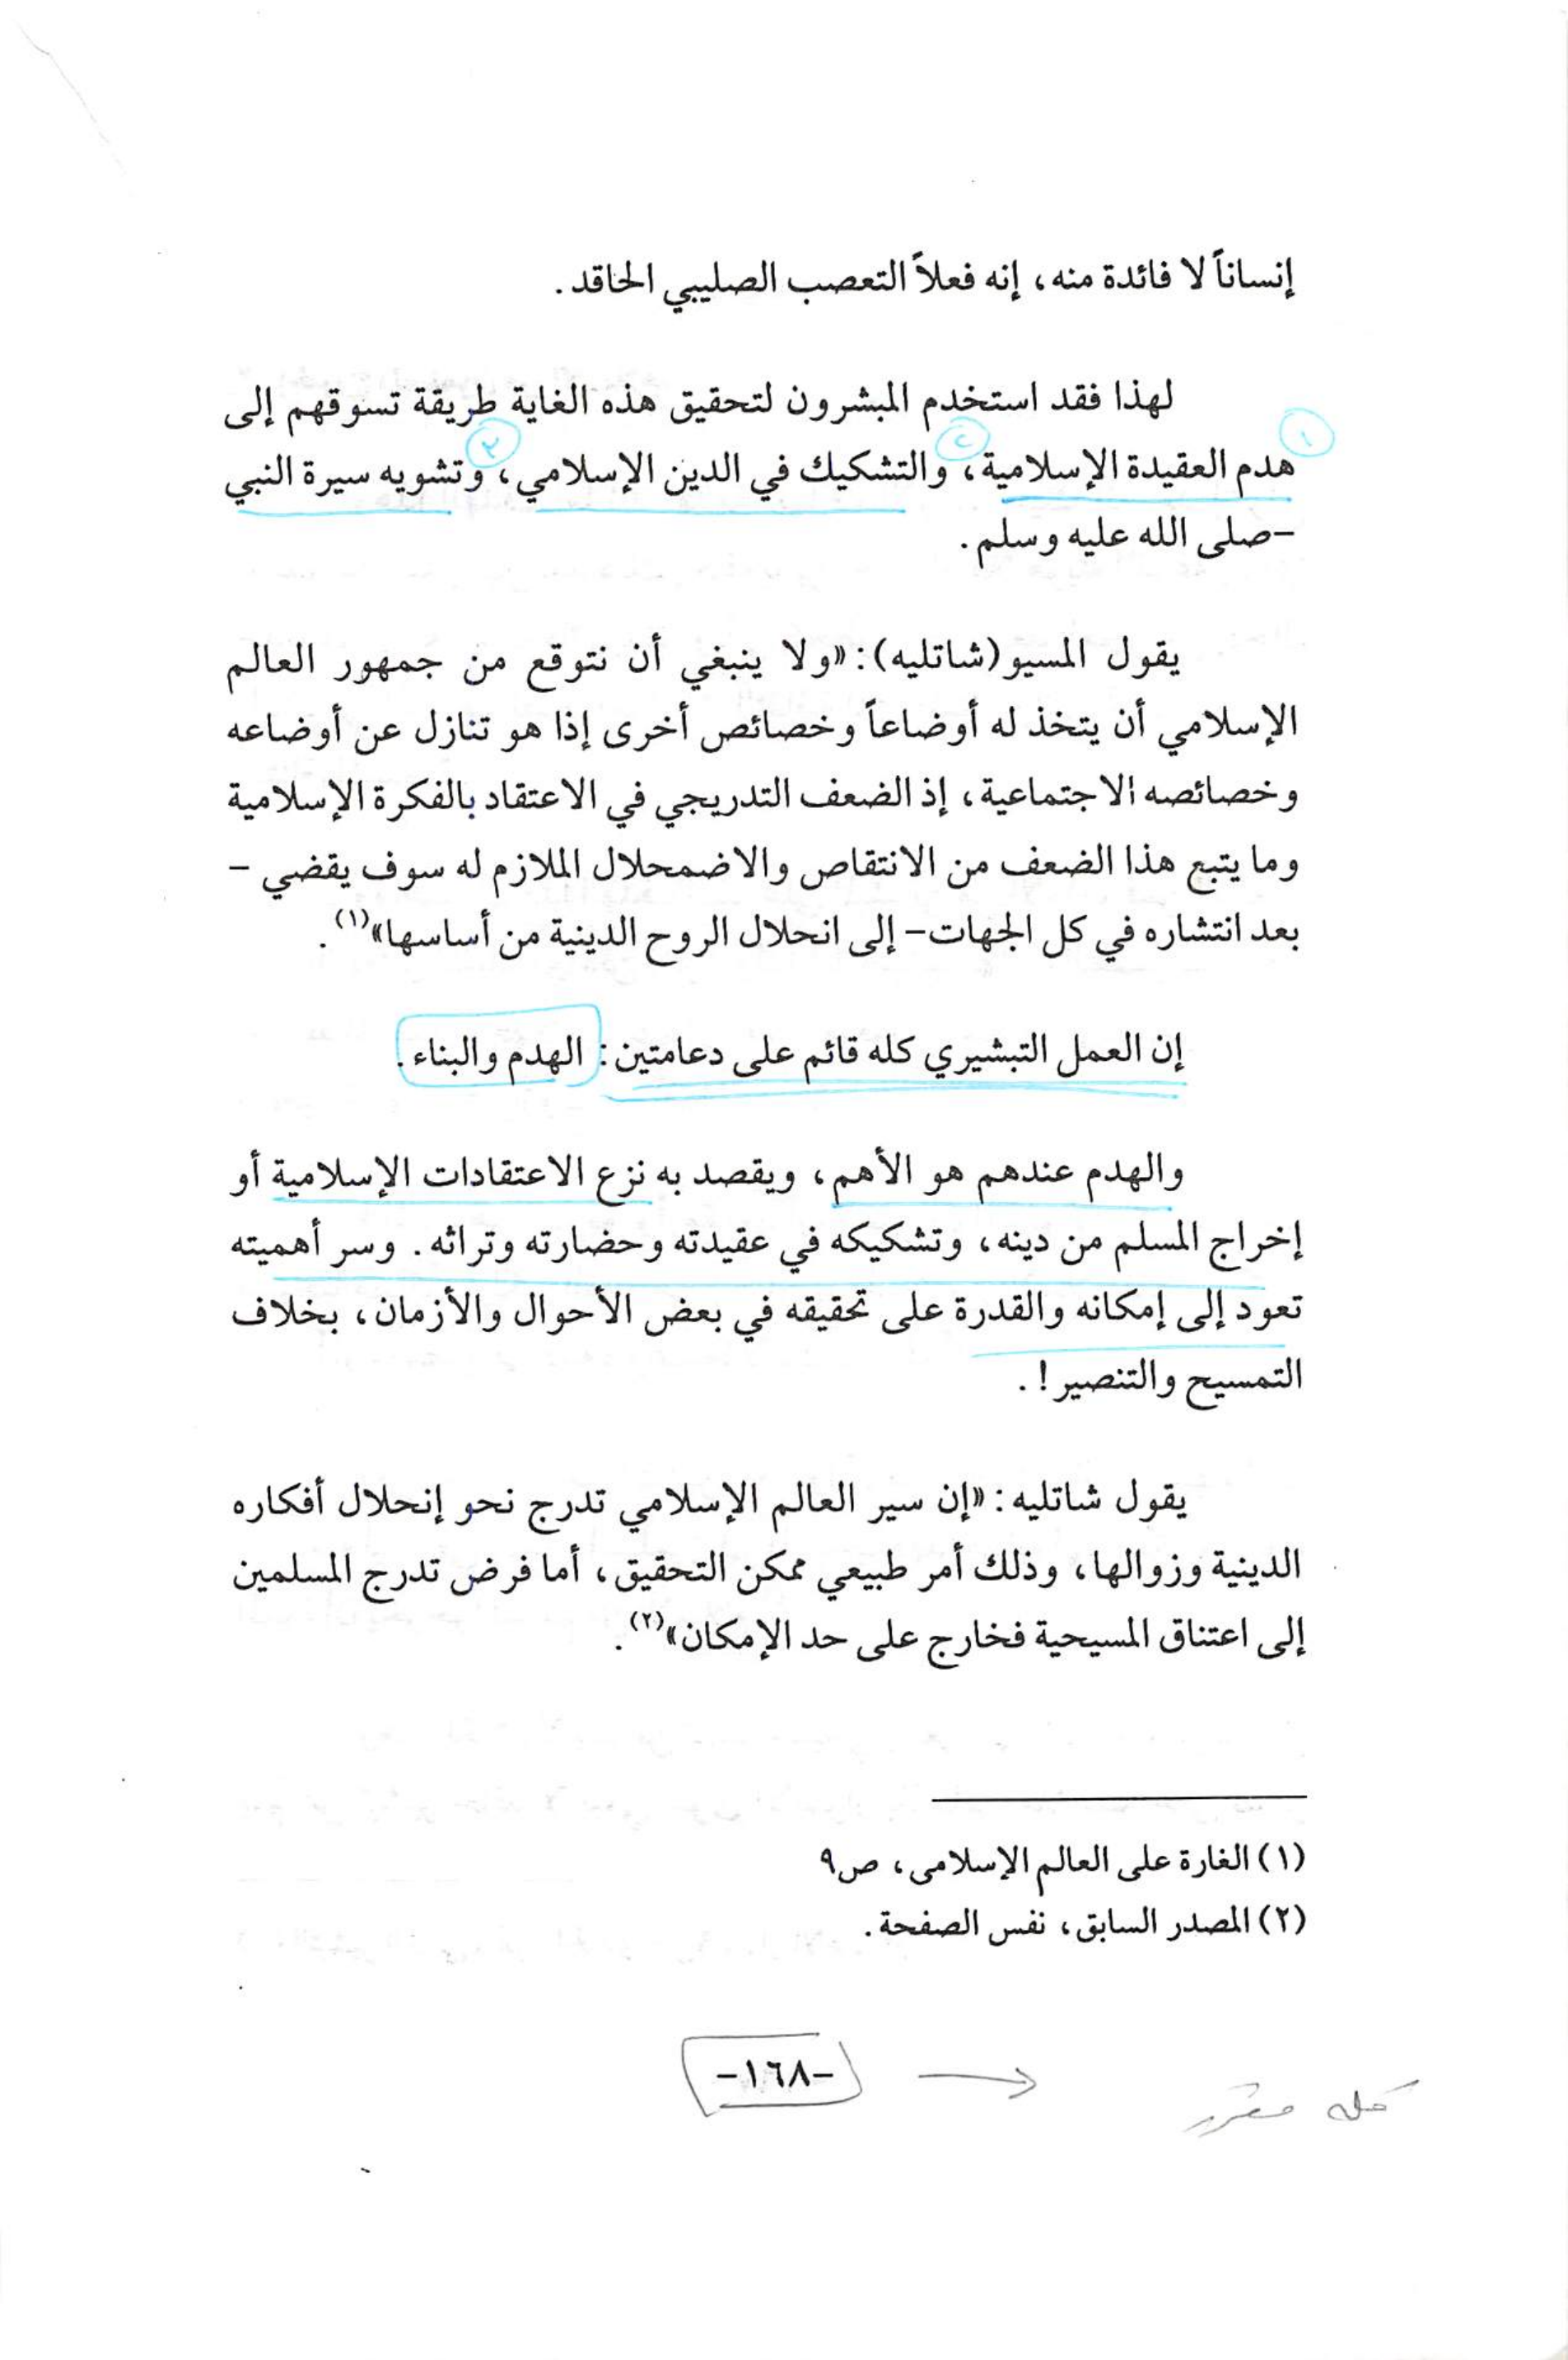 إنساناً لا فائدة منه، إنه فعلاً التعصب الصليبي الحاقد.
لهذا فقد استخدم المبشرون لتحقيق هذه الغاية طريقة تسوقهم إلى
١ ٢ ٣
هدم العقيدة الإسلامية، والتشكيك في الدين الإسلامي، وتشويه سيرة النبي
-صلى الله عليه وسلم.
يقول المسيو (شاتليه): «ولا ينبغي أن نتوقع من جمهور العالم
الإسلامي أن يتخذ له أوضاعاً وخصائص أخرى إذا هو تنازل عن أوضاعه
وخصائصه الاجتماعية، إذ الضعف التدريجي في الاعتقاد بالفكرة الإسلامية
وما يتبع هذا الضعف من الانتقاص والاضمحلال الملازم له سوف يقضي -
بعد انتشاره في كل الجهات- إلى انحلال الروح الدينية من أساسها»(١).
إن العمل التبشيري كله قائم على دعامتين: الهدم والبناء.
والهدم عندهم هو الأهم، ويقصد به نزع الاعتقادات الإسلامية أو
إخراج المسلم من دينه، وتشكيكه في عقيدته وحضارته وتراثه. وسر أهميته
تعود إلى إمكانه والقدرة على تحقيقه في بعض الأحوال والأزمان، بخلاف
التمسيح والتنصير!.
يقول شاتليه: «إن سير العالم الإسلامي تدرج نحو إنحلال أفكاره
الدينية وزوالها، وذلك أمر طبيعي ممكن التحقيق، أما فرض تدرج المسلمين
إلى اعتناق المسيحية فخارج على حد الإمكان»(٢).
(١) الغارة على العالم الإسلامى، ص٩
(٢) المصدر السابق، نفس الصفحة.
-١٦٨-
كله مقرر